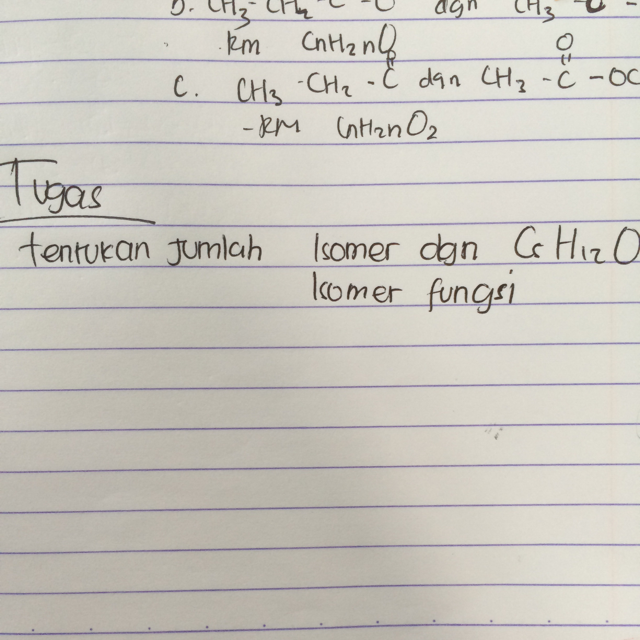 b. CH3-CH2-C-O dgn CH3-C-
RM CnH2nO
O
C. CH3-CH2-C dgn CH3-C-OC
-RM CnH2nO2
Tugas
tentukan jumlah Isomer dgn C5H12O
Isomer fungsi